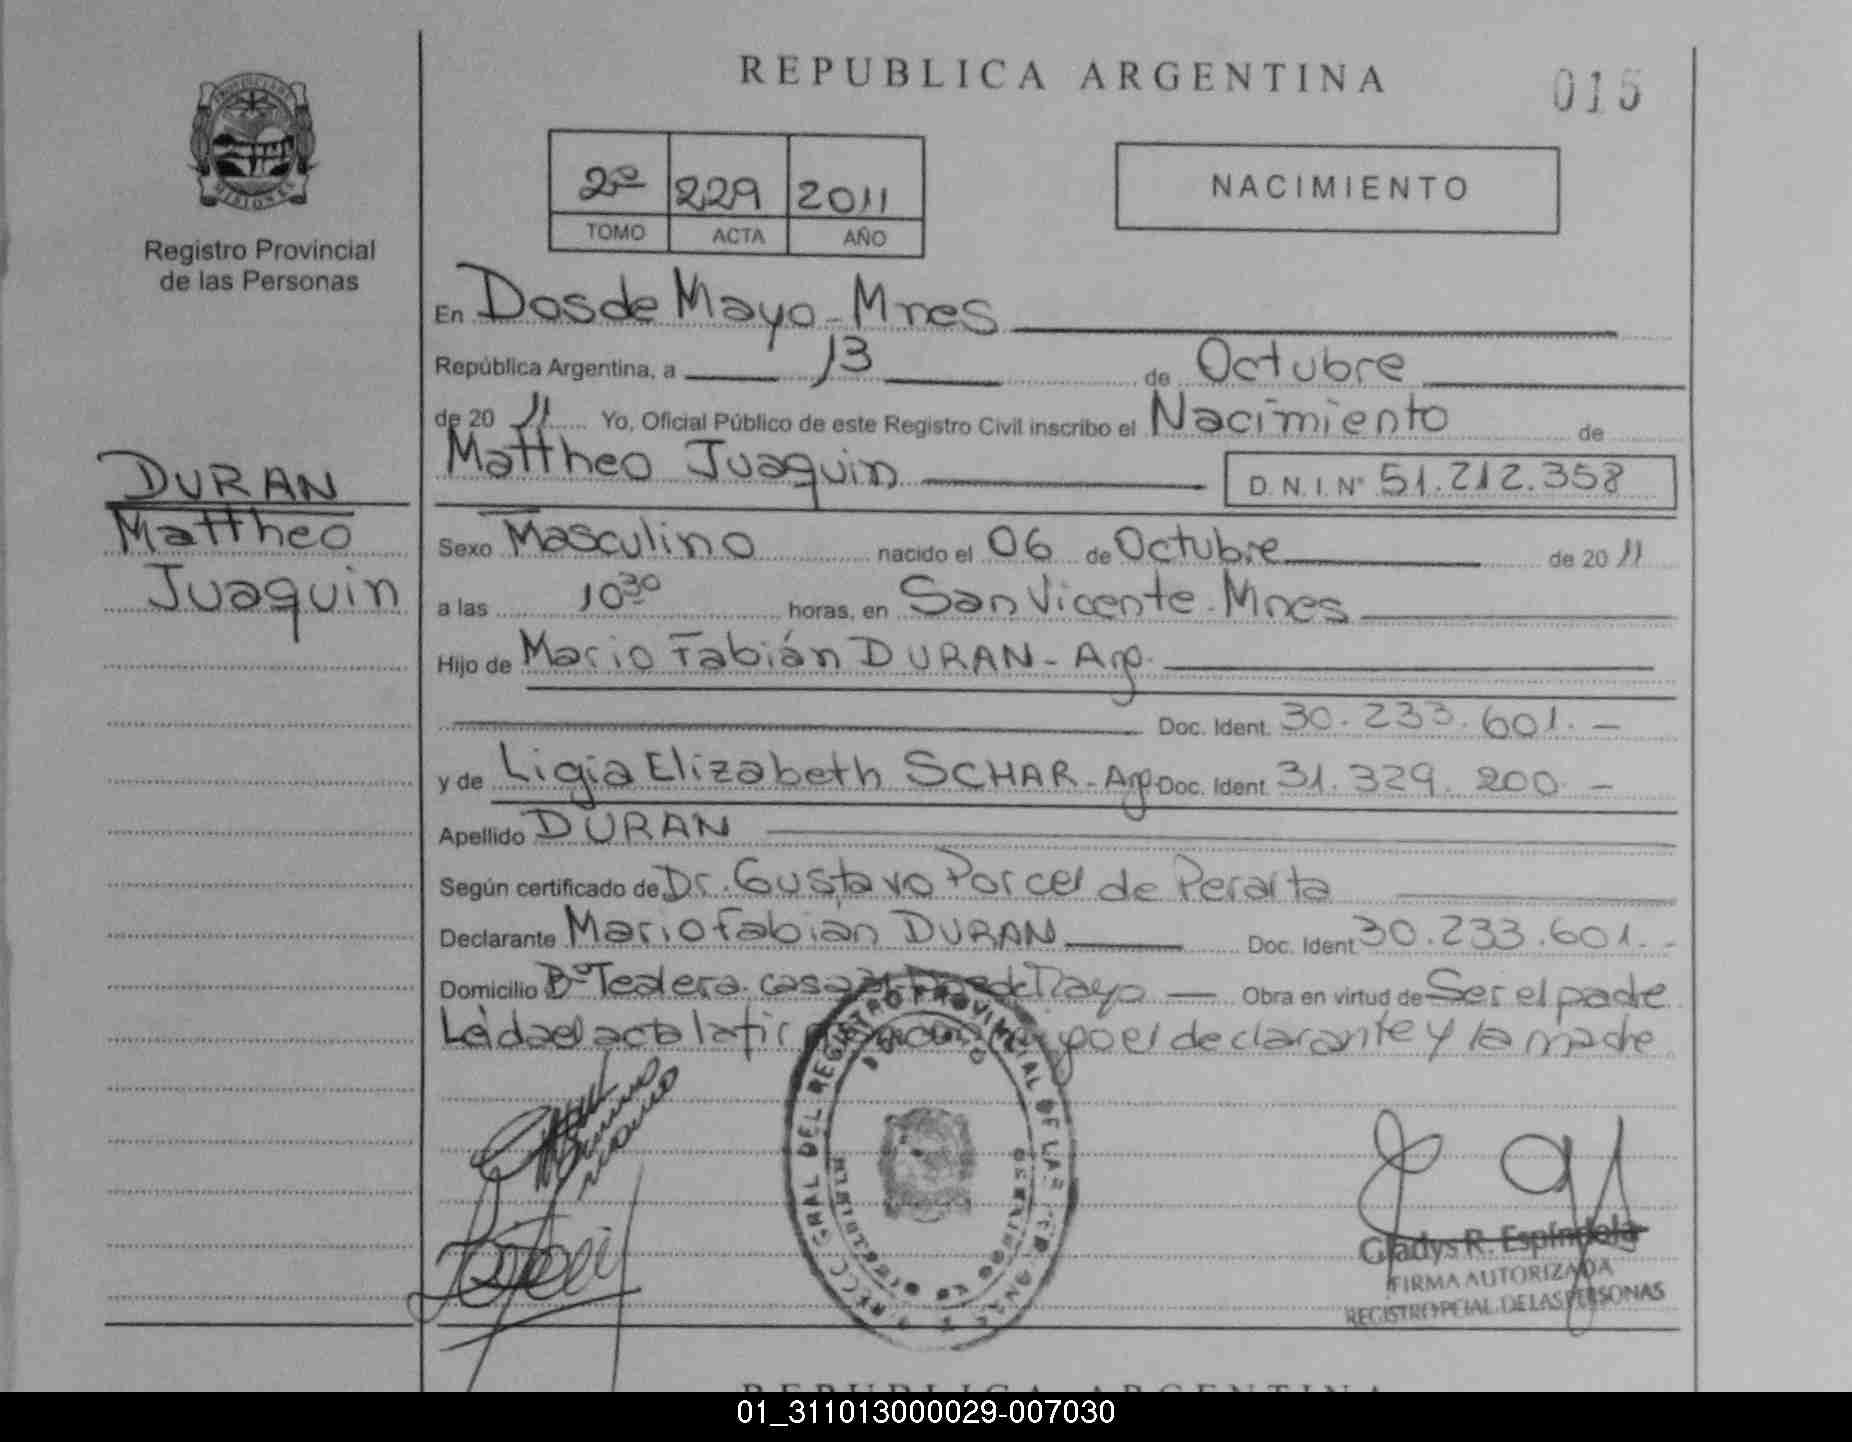 REPUBLICA ARGENTINA
015
PROVINCIA DE
MISIONES
Registro Provincial
de las Personas
2º 229 2011
TOMO ACTA AÑO
NACIMIENTO
En Dos de Mayo - Mnes
República Argentina, a 13 de Octubre
de 20 11 Yo, Oficial Público de este Registro Civil inscribo el Nacimiento de
Mattheo Juaquin D.N.I. Nº 51.212.358
DURAN
Mattheo
Juaquin
Sexo Masculino nacido el 06 de Octubre de 20 11
a las 10 30 horas, en San Vicente - Mnes
Hijo de Mario Fabián DURAN - Arg.
Doc. Ident. 30.233.601.-
y de Ligia Elizabeth SCHAR - Arg Doc. Ident. 31.329.200.-
Apellido DURAN
Según certificado de Dr. Gustavo Porcel de Peralta
Declarante Mario Fabián DURAN Doc. Ident 30.233.601.-
Domicilio Bº Tealera casa de Mayo - Obra en virtud de Ser el padre
Leida el acta la el declarante y la madre
DEL REGISTRO PROVINCIAL DE LAS
Gladys R. Espíndola
FIRMA AUTORIZADA
REGISTRO PCIAL. DE LAS PERSONAS
REPUBLICA ARGENTINA
01_311013000029-007030